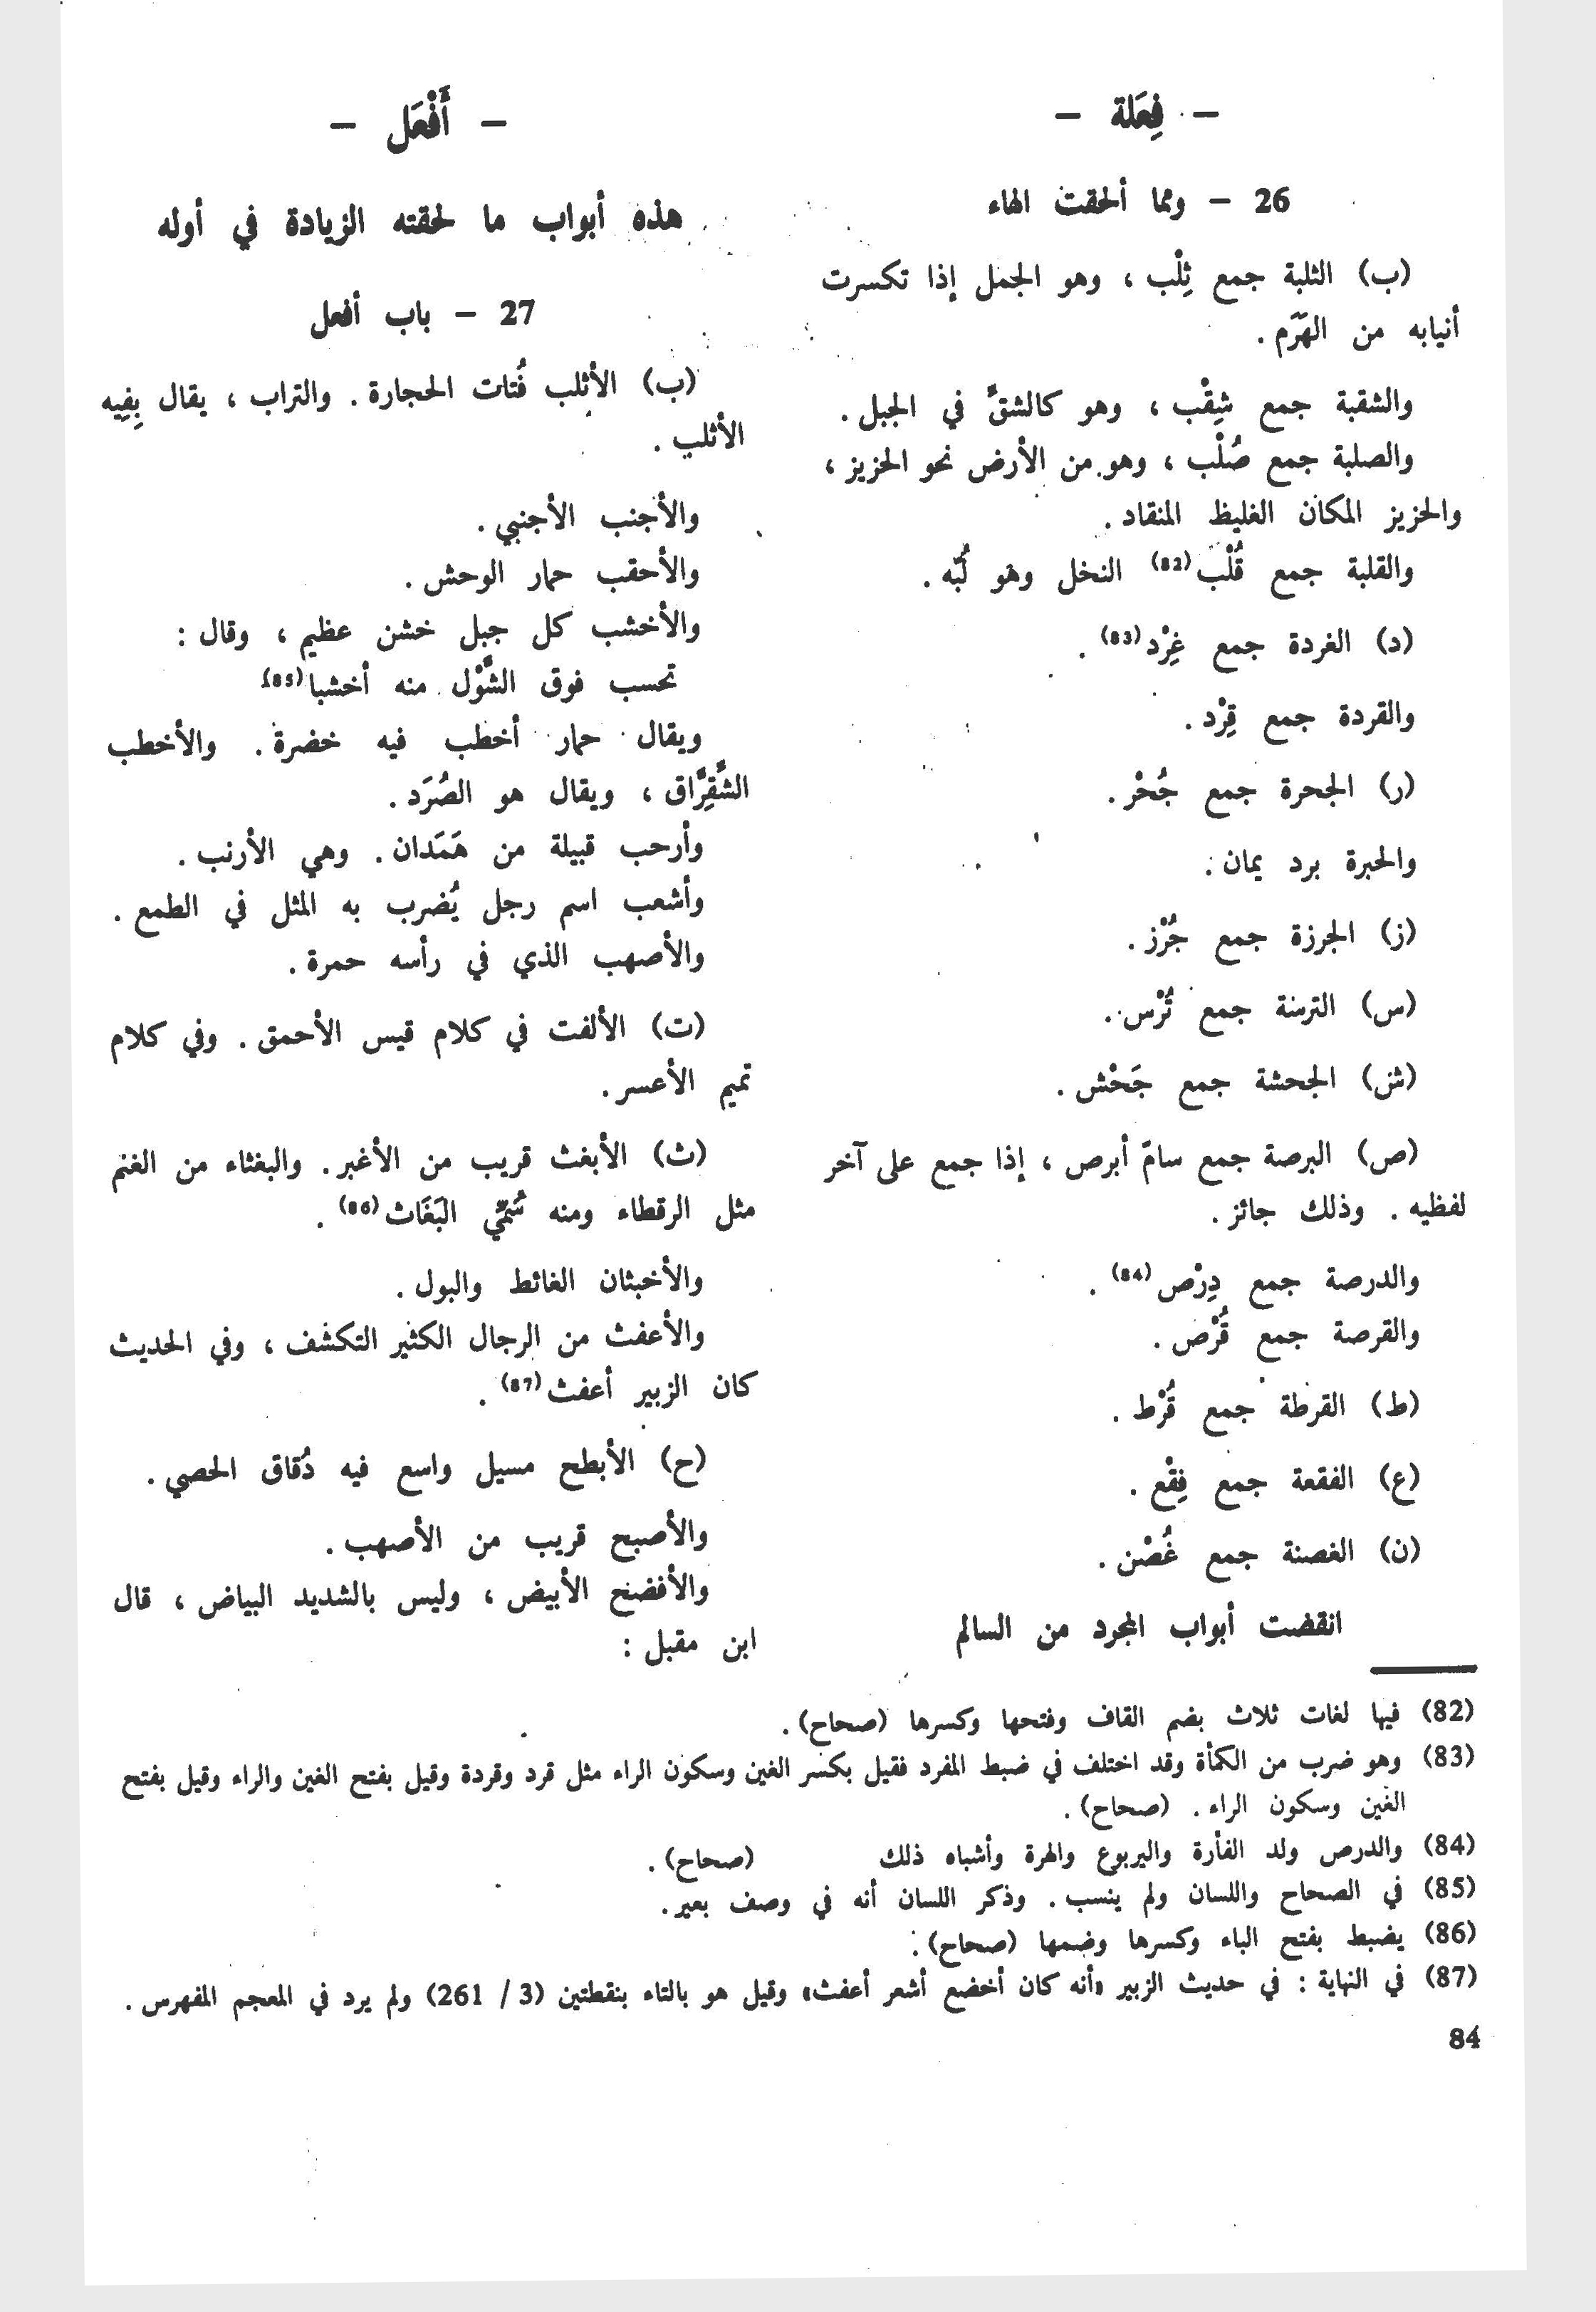 – فِعَلة –
26 – ومما ألحقت الهاء
(ب) الثلبة جمع ثِلْب ، وهو الجمل إذا تكسرت
أنيابه من الهَرَم .
والشقبة جمع شِقْب ، وهو كالشقّ في الجبل .
والصلبة جمع صُلْب ، وهو من الأرض نحو الحزيز ،
والحزيز المكان الغليظ المنقاد .
والقلبة جمع قُلْب(82) النخل وهو لُبّه .
(د) الغردة جمع غِرْد(83) .
والقردة جمع قِرْد .
(ر) الجحرة جمع جُحْر .
والحبرة برد يمان .
(ز) الجرزة جمع جُرْز .
(س) الترسة جمع تُرْس .
(ش) الجحشة جمع جَحْش .
(ص) البرصة جمع سامّ أبرص ، إذا جمع على آخر
لفظيه . وذلك جائز .
والدرصة جمع دِرْص(84) .
والقرصة جمع قُرْص .
(ط) القرطة جمع قُرْط .
(ع) الفقعة جمع فِقْع .
(ن) الغصنة جمع غُصْن .
انقضت أبواب المجرد من السالم
– أَفْعَل –
هذه أبواب ما لحقته الزيادة في أوله
27 – باب أفعل
(ب) الأثلب فُتات الحجارة . والتراب ، يقال بِفِيه
الأثلب .
والأجنب الأجنبي .
والأحقب حمار الوحش .
والأخشب كل جبل خشن عظيم ، وقال :
تحسب فوق الشَّوْل منه أخشبا(85)
ويقال حمار أخطب فيه خضرة . والأخطب
الشَّقِرَّاق ، ويقال هو الصُرَد .
وأرحب قبيلة من هَمَدان . وهي الأرنب .
وأشعب اسم رجل يُضرب به المثل في الطمع .
والأصهب الذي في رأسه حمرة .
(ت) الألفت في كلام قيس الأحمق . وفي كلام
تميم الأعسر .
(ث) الأبغث قريب من الأغبر . والبغثاء من الغنم
مثل الرقطاء ومنه سُمِّي البَغَاث(86) .
والأخبثان الغائط والبول .
والأعفث من الرجال الكثير التكشف ، وفي الحديث
كان الزبير أعفث(87) .
(ح) الأبطح مسيل واسع فيه دُقاق الحصي .
والأصبح قريب من الأصهب .
والأفضح الأبيض ، وليس بالشديد البياض ، قال
ابن مقبل :
(82) فيها لغات ثلاث بضم القاف وفتحها وكسرها (صحاح) .
(83) وهو ضرب من الكمأة وقد اختلف في ضبط المفرد فقيل بكسر الغين وسكون الراء مثل قرد وقردة وقيل بفتح الغين والراء وقيل بفتح
الغين وسكون الراء . (صحاح) .
(84) والدرص ولد الفأرة واليربوع والهرة وأشباه ذلك (صحاح) .
(85) في الصحاح واللسان ولم ينسب . وذكر اللسان أنه في وصف بعير .
(86) يضبط بفتح الباء وكسرها وضمها (صحاح) .
(87) في النهاية : في حديث الزبير «أنه كان أخضع أشعر أعفث» وقيل هو بالتاء بنقطتين (3 / 261) ولم يرد في المعجم المفهرس .
84